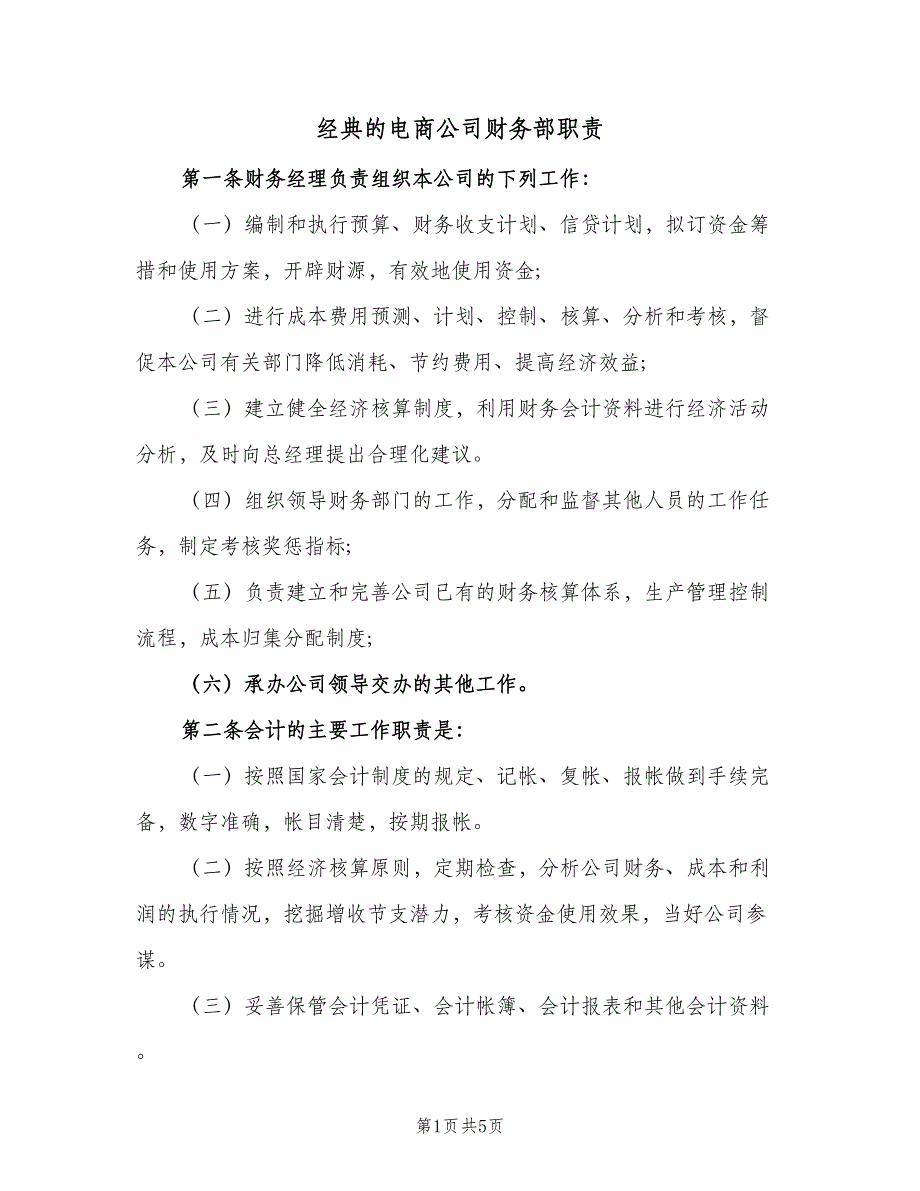 经典的电商公司财务部职责
第一条财务经理负责组织本公司的下列工作：
（一）编制和执行预算、财务收支计划、信贷计划，拟订资金筹
措和使用方案，开辟财源，有效地使用资金;
（二）进行成本费用预测、计划、控制、核算、分析和考核，督
促本公司有关部门降低消耗、节约费用、提高经济效益;
（三）建立健全经济核算制度，利用财务会计资料进行经济活动
分析，及时向总经理提出合理化建议。
（四）组织领导财务部门的工作，分配和监督其他人员的工作任
务，制定考核奖惩指标;
（五）负责建立和完善公司已有的财务核算体系，生产管理控制
流程，成本归集分配制度;
（六）承办公司领导交办的其他工作。
第二条会计的主要工作职责是：
（一）按照国家会计制度的规定、记帐、复帐、报帐做到手续完
备，数字准确，帐目清楚，按期报帐。
（二）按照经济核算原则，定期检查，分析公司财务、成本和利
润的执行情况，挖掘增收节支潜力，考核资金使用效果，当好公司参
谋。
（三）妥善保管会计凭证、会计帐簿、会计报表和其他会计资料
。
第1页共5页